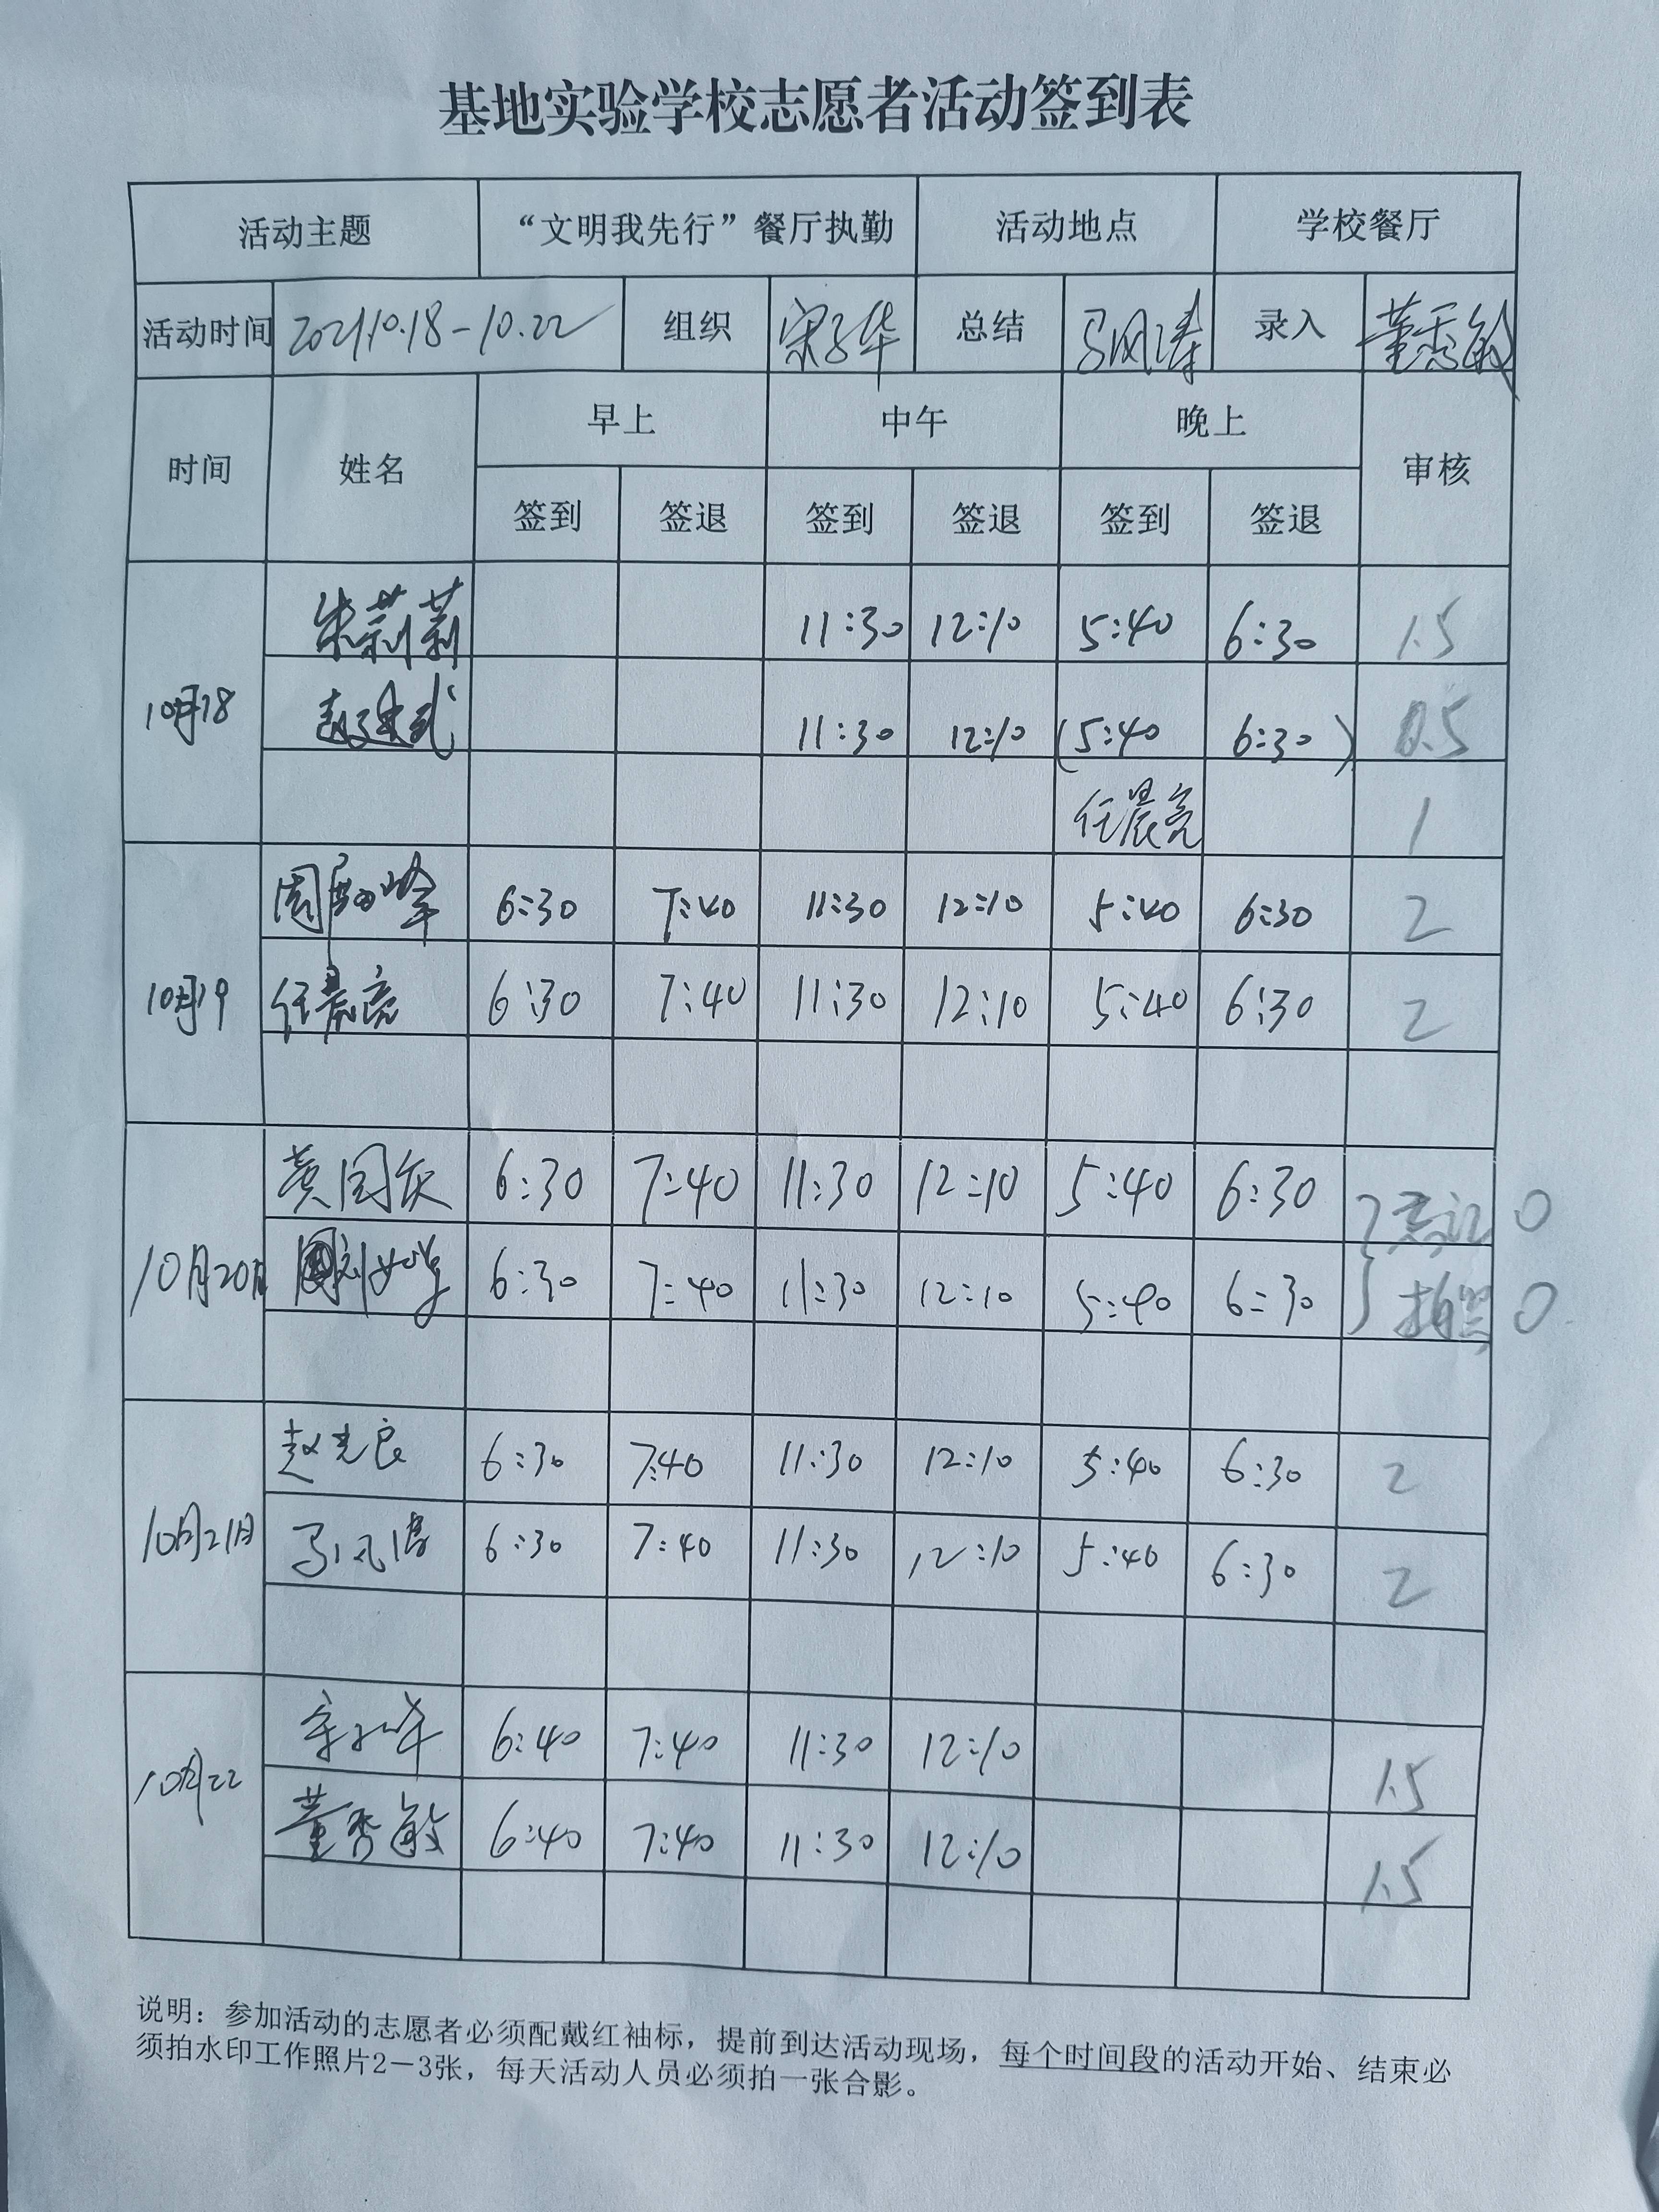 基地实验学校志愿者活动签到表
活动主题 “文明我先行”餐厅执勤 活动地点 学校餐厅
活动时间 2021.10.18-10.22 组织 宋子华 总结 马风涛 录入 董秀敏
时间 姓名 早上 中午 晚上 审核
签到 签退 签到 签退 签到 签退
10月18 朱莉莉 11:30 12:10 5:40 6:30 1.5
11:30 12:10 (5:40 6:30) 0.5
任晨亮 1
10月19 周 峰 6:30 7:40 11:30 12:10 5:40 6:30 2
任晨亮 6:30 7:40 11:30 12:10 5:40 6:30 2
10月20日 黄国庆 6:30 7:40 11:30 12:10 5:40 6:30 忘记 0
6:30 7:40 11:30 12:10 5:40 6:30 拍照 0
10月21日 赵光良 6:30 7:40 11:30 12:10 5:40 6:30 2
马风涛 6:30 7:40 11:30 12:10 5:40 6:30 2
10月22 宋子华 6:40 7:40 11:30 12:10 1.5
董秀敏 6:40 7:40 11:30 12:10 1.5
说明：参加活动的志愿者必须配戴红袖标，提前到达活动现场，每个时间段的活动开始、结束必
须拍水印工作照片2－3张，每天活动人员必须拍一张合影。